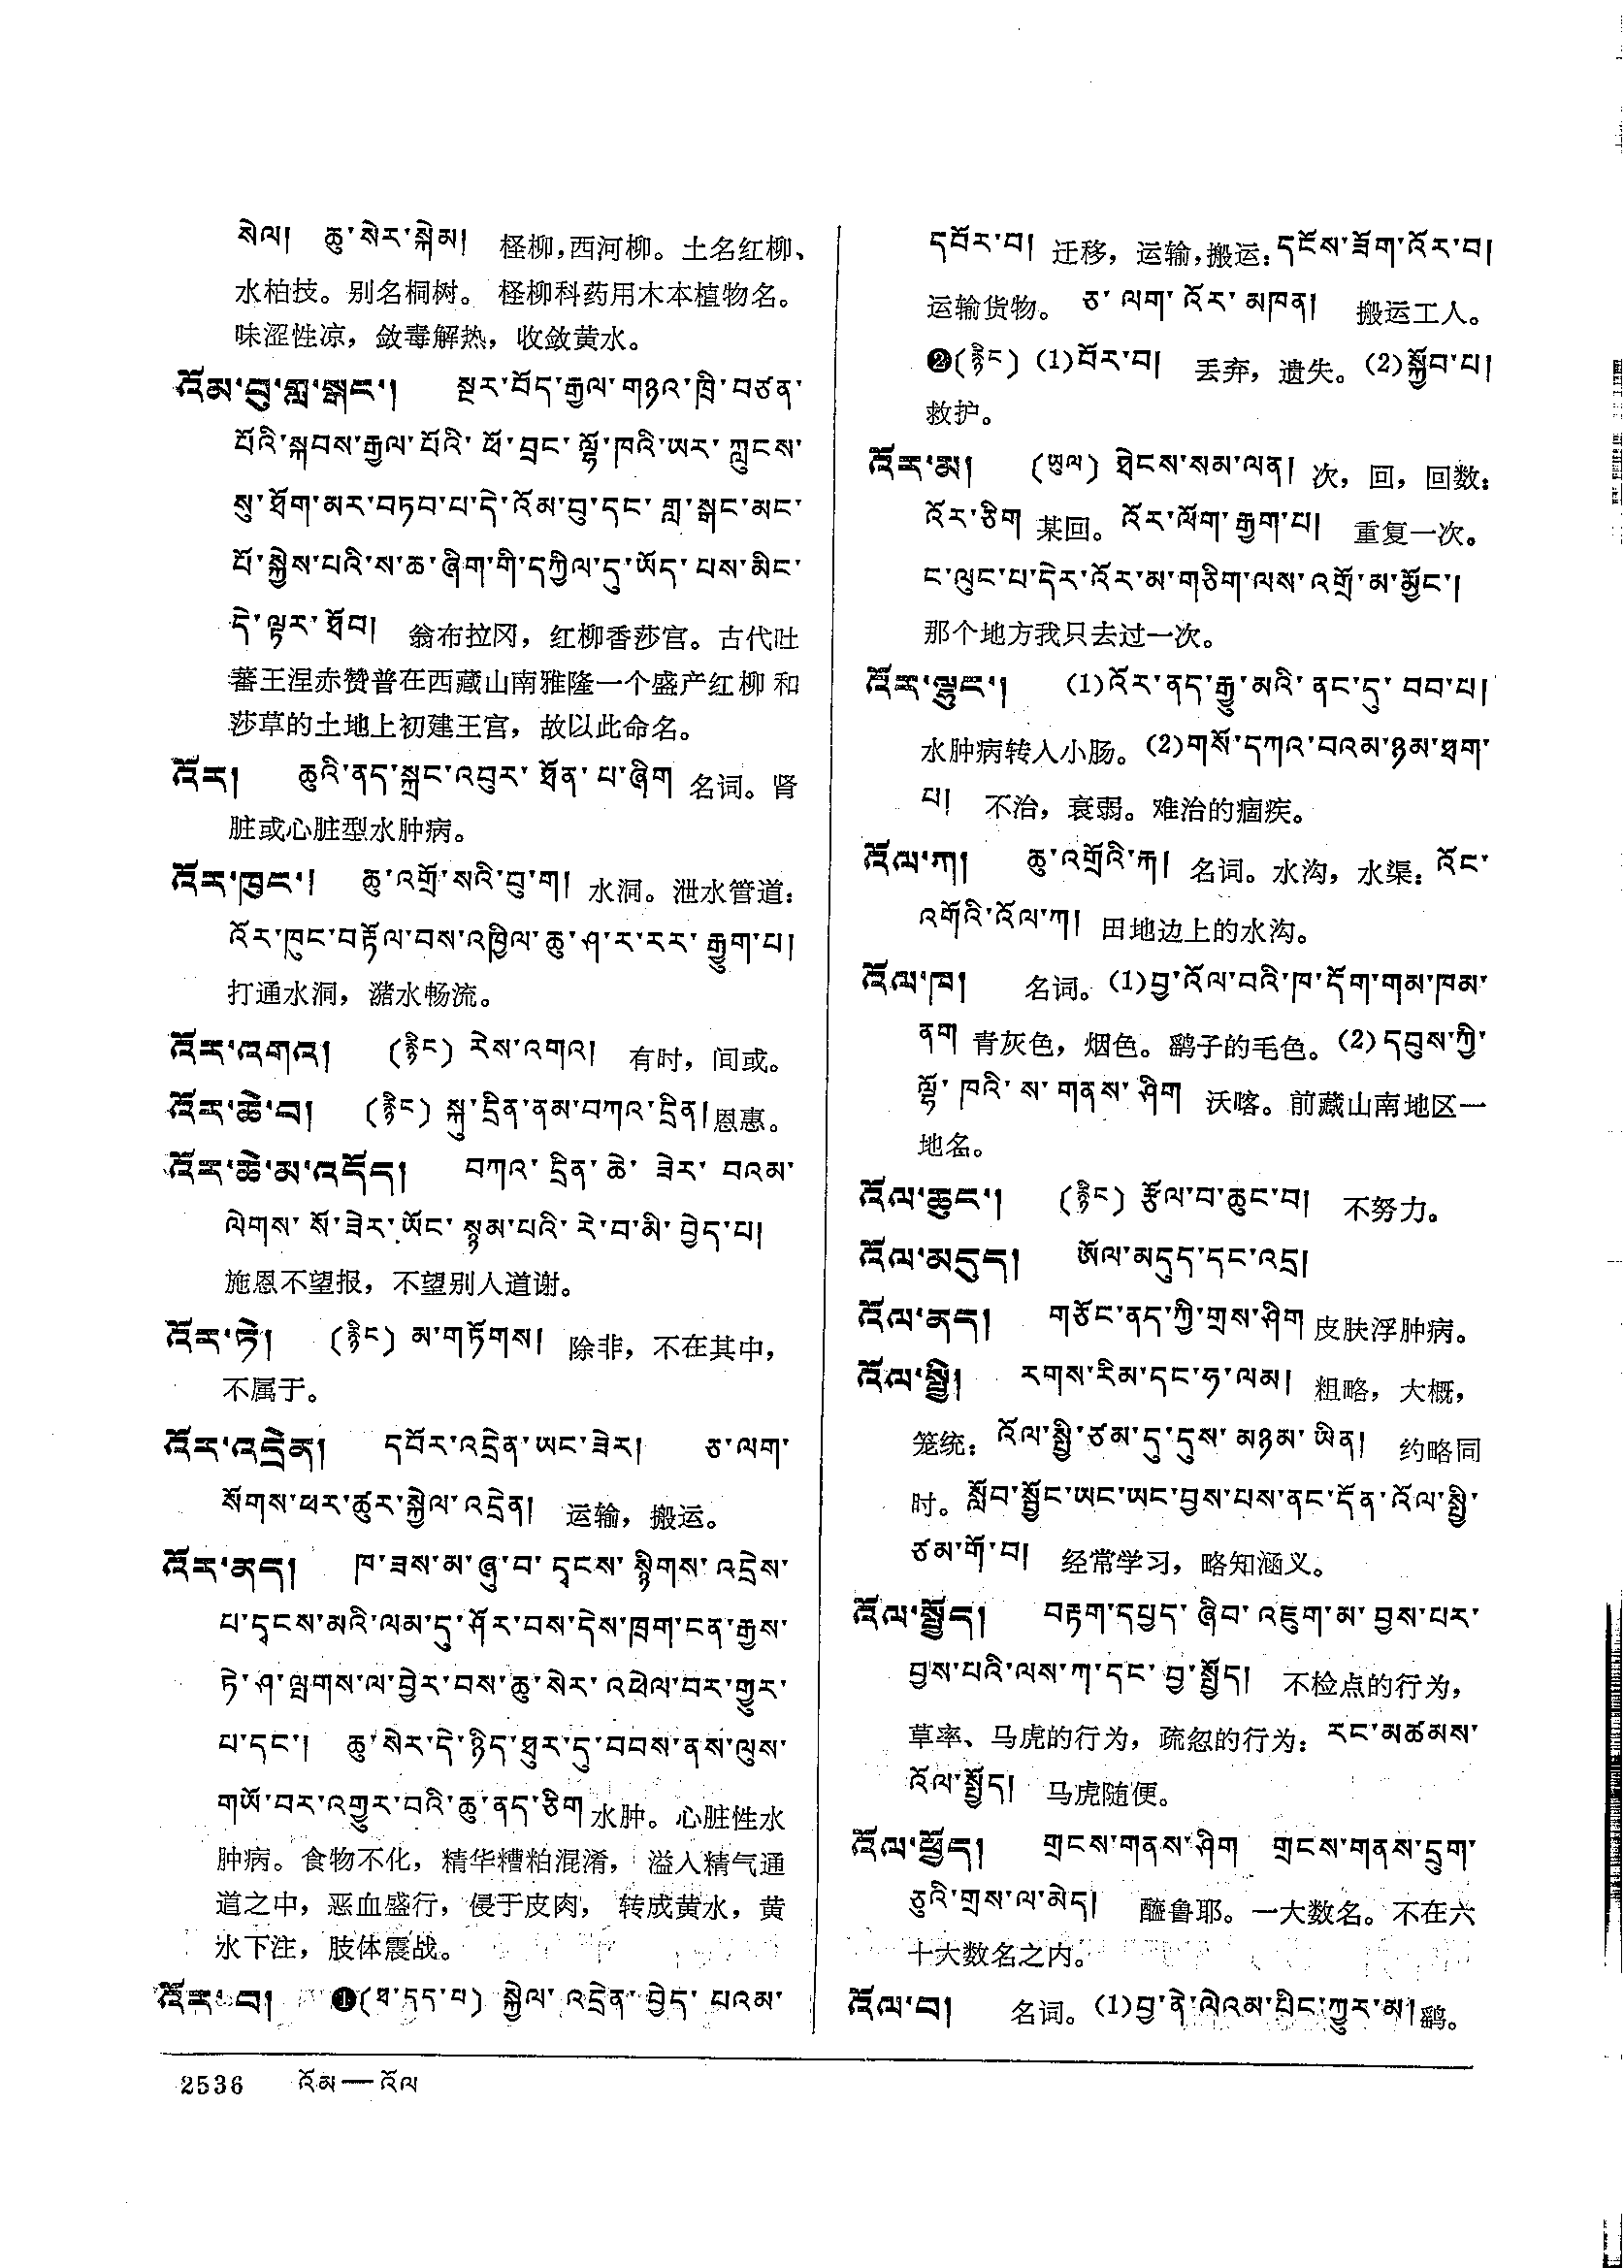 སེལ། ཆུ་སེར་སྐེམ། 柽柳,西河柳。土名红柳、
水柏技。别名桐树。 柽柳科药用木本植物名。
味涩性凉，敛毒解热，收敛黄水。
འོམ་བུ་གླ་སྒང་། སྔར་བོད་རྒྱལ་གཉའ་ཁྲི་བཙན་
པོའི་སྐབས་རྒྱལ་པོའི་ཕོ་བྲང་ལྷོ་ཁའི་ཡར་ཀླུངས་
སུ་ཐོག་མར་བཏབ་པ་དེ་འོམ་བུ་དང་གླ་སྒང་མང་
པོ་སྐྱེས་པའི་ས་ཆ་ཞིག་གི་དཀྱིལ་དུ་ཡོད་པས་མིང་
དེ་ལྟར་ཐོབ། 翁布拉冈，红柳香莎宫。古代吐
蕃王涅赤赞普在西藏山南雅隆一个盛产红柳和
莎草的土地上初建王宫，故以此命名。
འོར། ཆུའི་ནད་སྐྲང་འབུར་ཐོན་པ་ཞིག 名词。肾
脏或心脏型水肿病。
འོར་ཁུང་། ཆུ་འགྲོ་སའི་བུ་ག། 水洞。泄水管道：
འོར་ཁུང་བརྟོལ་བས་འཁྱིལ་ཆུ་ཤ་ར་རར་རྒྱུག་པ།
打通水洞，潴水畅流。
འོར་འགའ། (རྙིང) རེས་འགའ། 有时，间或。
འོར་ཆེ་བ། (རྙིང) སྐུ་དྲིན་ནམ་བཀའ་དྲིན། 恩惠。
འོར་ཆེ་མ་འདོད། བཀའ་དྲིན་ཆེ་ཟེར་བའམ་
ལེགས་སོ་ཟེར་ཡོང་སྙམ་པའི་རེ་བ་མི་བྱེད་པ།
施恩不望报，不望别人道谢。
འོར་ཏེ། (རྙིང) མ་གཏོགས། 除非，不在其中，
不属于。
འོར་འདྲེན། དབོར་འདྲེན་ཡང་ཟེར། ཅ་ལག་
སོགས་ཕར་ཚུར་སྐྱེལ་འདྲེན། 运输，搬运。
འོར་ནད། ཁ་ཟས་མ་ཞུ་བ་དྭངས་སྙིགས་འདྲེས་
པ་དྭངས་མའི་ལམ་དུ་ཤོར་བས་དེས་ཁྲག་ངན་རྒྱས་
ཏེ་ཤ་ལྤགས་ལ་བྱེར་བས་ཆུ་སེར་འཕེལ་བར་གྱུར་
པ་དང་། ཆུ་སེར་དེ་ཉིད་ཐུར་དུ་བབས་ནས་ལུས་
གཡོ་བར་འགྱུར་བའི་ཆུ་ནད་ཅིག 水肿。心脏性水
肿病。食物不化，精华糟粕混淆， 溢入精气通
道之中，恶血盛行，侵于皮肉， 转成黄水，黄
水下注，肢体震战。
འོར་བ། ❶(ཐ་དད་པ) སྐྱེལ་འདྲེན་བྱེད་པའམ་
2536 འོམ—འོལ
དབོར་བ། 迁移，运输,搬运：དངོས་ཟོག་འོར་བ།
运输货物。 ཅ་ལག་འོར་མཁན། 搬运工人。
❷(རྙིང) (1)བོར་བ། 丢弃，遗失。(2)སྐྱོབ་པ།
救护。
འོར་མ། (ཡུལ) ཐེངས་སམ་ལན། 次，回，回数：
འོར་ཅིག 某回。འོར་ལོག་རྒྱག་པ། 重复一次。
ང་ལུང་པ་དེར་འོར་མ་གཅིག་ལས་འགྲོ་མ་མྱོང་།
那个地方我只去过一次。
འོར་ལྷུང་། (1)འོར་ནད་རྒྱུ་མའི་ནང་དུ་བབ་པ།
水肿病转入小肠。(2)གསོ་དཀའ་བའམ་ཉམ་ཐག་
པ། 不治，衰弱。难治的痼疾。
འོལ་ཀ། ཆུ་འགྲོའི་རྐ། 名词。水沟，水渠：འོང་
འགོའི་འོལ་ཀ། 田地边上的水沟。
འོལ་ཁ། 名词。(1)བྱ་འོལ་བའི་ཁ་དོག་གམ་ཁམ་
ནག 青灰色，烟色。鹞子的毛色。(2)དབུས་ཀྱི་
ལྷོ་ཁའི་ས་གནས་ཤིག 沃喀。前藏山南地区一
地名。
འོལ་ཆུང་། (རྙིང) རྩོལ་བ་ཆུང་བ། 不努力。
འོལ་མདུད། ཨོལ་མདུད་དང་འདྲ།
འོལ་ནད། གཅོང་ནད་ཀྱི་གྲས་ཤིག 皮肤浮肿病。
འོལ་སྤྱི། རགས་རིམ་དང་ཧ་ལམ། 粗略，大概，
笼统：འོལ་སྤྱི་ཙམ་དུ་དུས་མཉམ་ཡིན། 约略同
时。སློབ་སྦྱོང་ཡང་ཡང་བྱས་པས་ནང་དོན་འོལ་སྤྱི་
ཙམ་གོ་བ། 经常学习，略知涵义。
འོལ་སྤྱོད། བརྟག་དཔྱད་ཞིབ་འཇུག་མ་བྱས་པར་
བྱས་པའི་ལས་ཀ་དང་བྱ་སྤྱོད། 不检点的行为，
草率、马虎的行为，疏忽的行为：རང་མཚམས་
འོལ་སྤྱོད། 马虎随便。
འོལ་ཕྱོད། གྲངས་གནས་ཤིག གྲངས་གནས་དྲུག་
ཅུའི་གྲས་ལ་མེད། 醯鲁耶。一大数名。不在六
十大数名之内。
འོལ་བ། 名词。(1)བྱ་ནེ་ལེའམ་པིང་ཀྱུར་མ། 鹞。